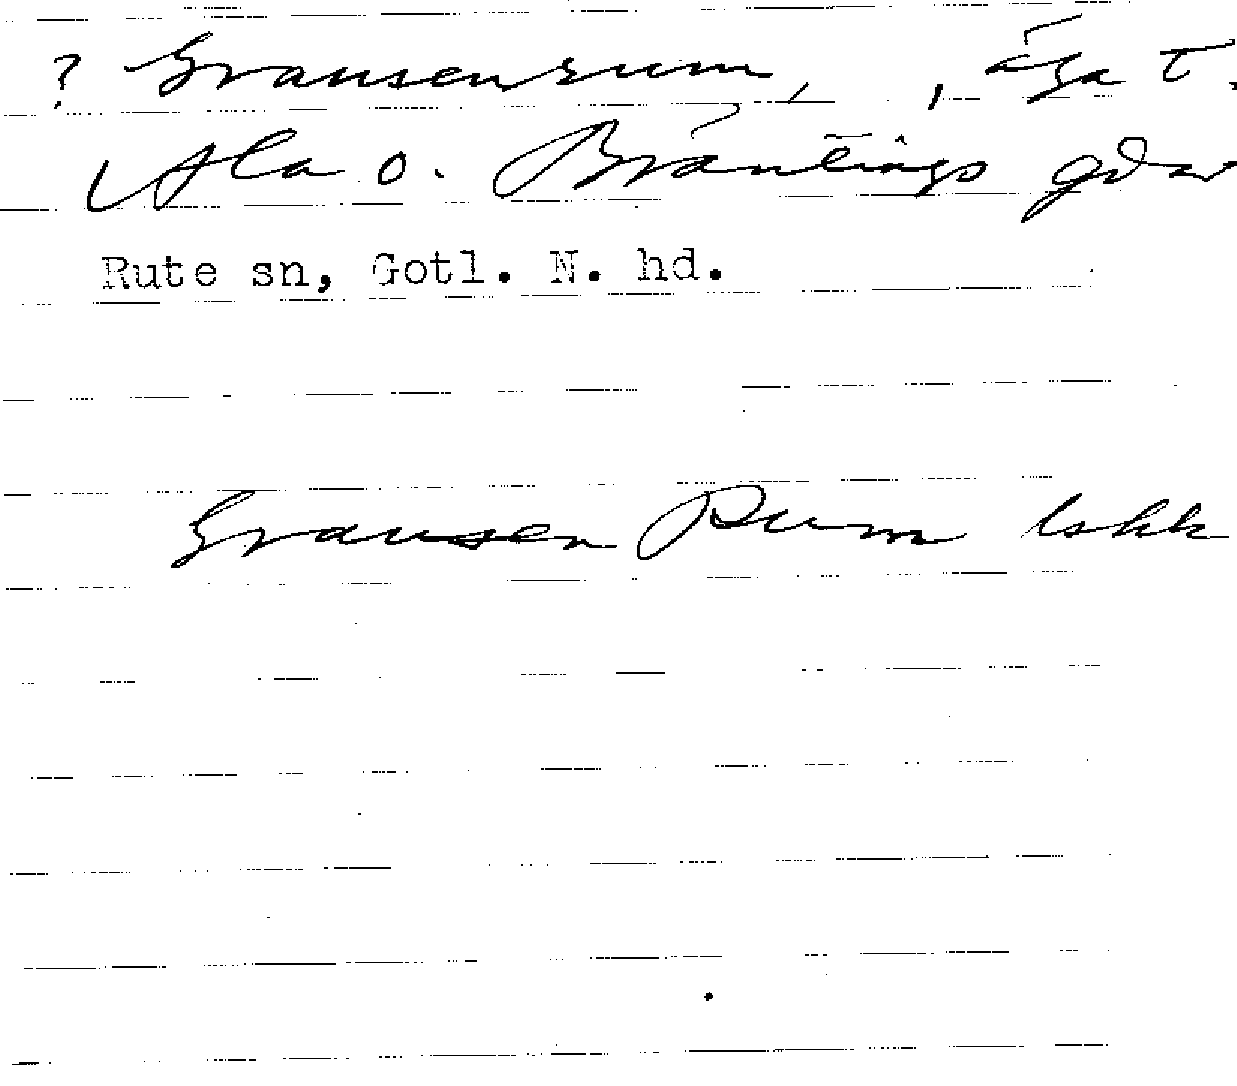 ? Gransenrum, , äga t.
Ala o. Bräntings gdar
Rute sn, Gotl. N. hd.
Gransen Rum lskk